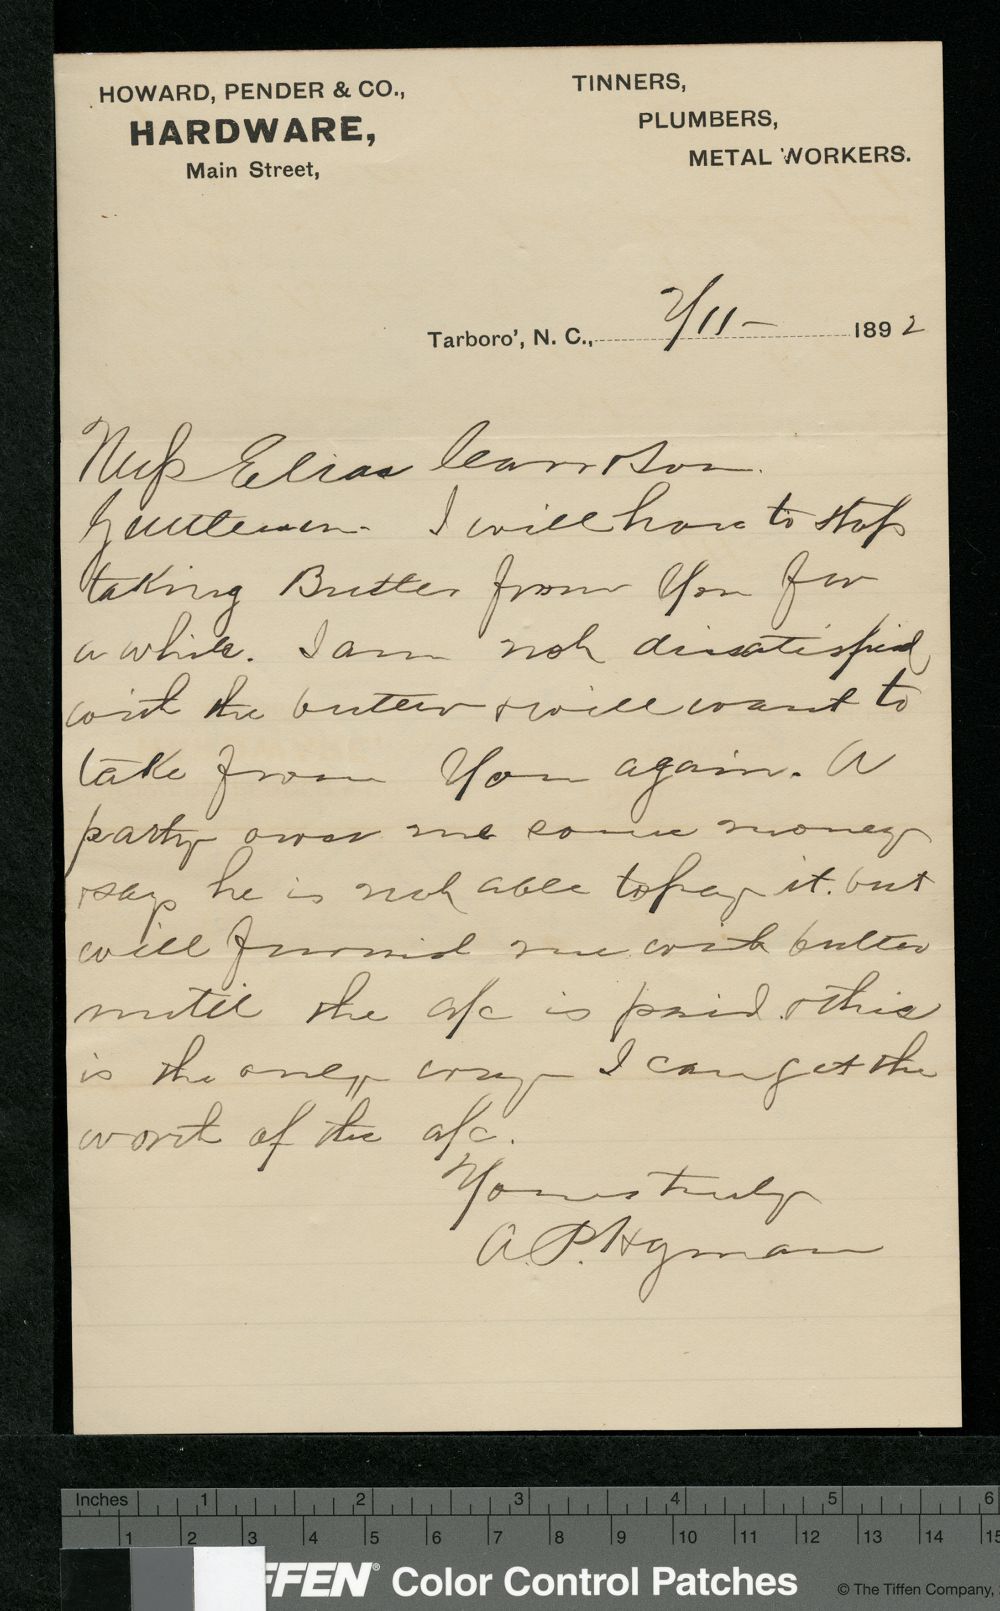 HOWARD, PENDER & CO.,
HARDWARE,
Main Street,
TINNERS,
PLUMBERS,
METAL WORKERS.
Tarboro', N. C., 2/11- 1892
Mess Elias Carr & Son.
Gentlemen. I will have to stop
taking Butter from you for
a while. I am not dissatisfied
with the butter & will want to
take from You again. A
party owes me some money
& says he is not able to pay it. but
will furnish me with butter
until the a/c is paid. & this
is the only way I can get the
worth of the a/c.
Yours truly
A. P. Hyman
Inches 1 2 3 4 5 6
1 2 3 4 5 6 7 8 9 10 11 12 13 14 15
FFEN® Color Control Patches © The Tiffen Company,